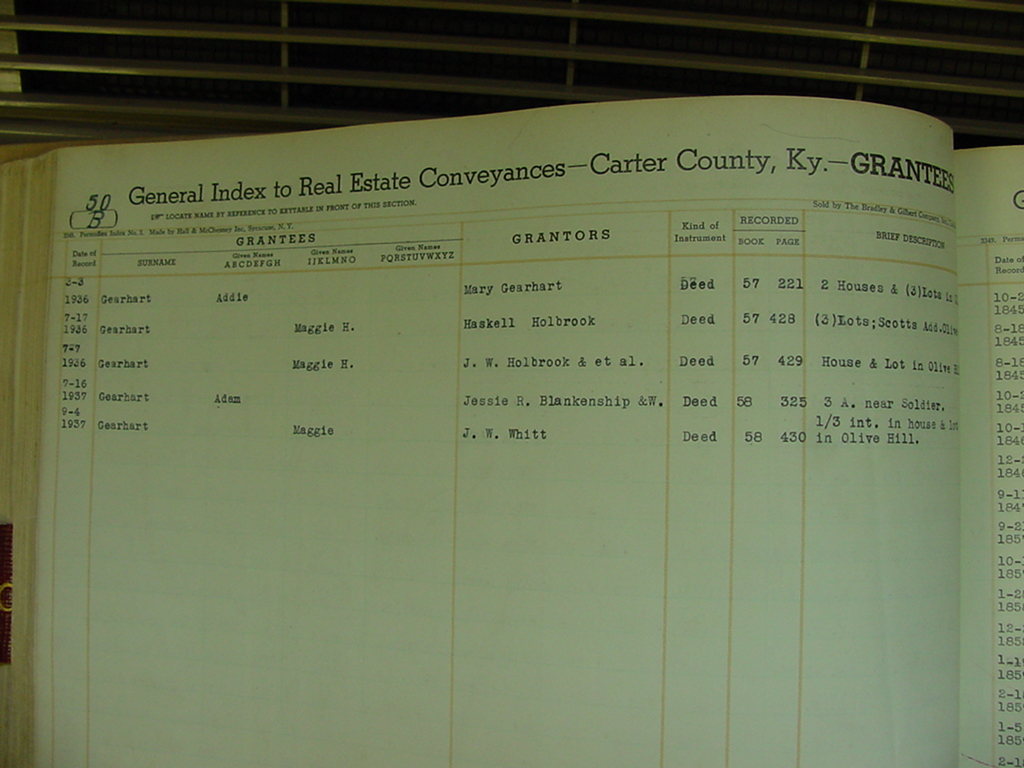 50
B
General Index to Real Estate Conveyances—Carter County, Ky.—GRANTEES
LOCATE NAME BY REFERENCE TO KEYTABLE IN FRONT OF THIS SECTION.
Sold by The Bradley & Gilbert Company,
Made by Hall & McChesney Inc., Syracuse, N. Y.
Date of Record
GRANTEES
SURNAME
Given Names ABCDEFGH
Given Names IJKLMNO
Given Names PQRSTUVWXYZ
GRANTORS
Kind of Instrument
RECORDED
BOOK PAGE
BRIEF DESCRIPTION
3-3
1936 Gearhart Addie Mary Gearhart Deed 57 221 2 Houses & (3)Lots in
7-17
1936 Gearhart Maggie H. Haskell Holbrook Deed 57 428 (3)Lots;Scotts Add.Olive
7-7
1936 Gearhart Maggie H. J. W. Holbrook & et al. Deed 57 429 House & Lot in Olive
7-16
1937 Gearhart Adam Jessie R. Blankenship &W. Deed 58 325 3 A. near Soldier.
9-4
1937 Gearhart Maggie J. W. Whitt Deed 58 430 1/3 int. in house & lot
in Olive Hill.
G
Date of
Record
10-2
1845
8-18
1845
8-18
1845
10-2
1845
10-1
1846
12-
1846
9-1
184
9-2
185
10-
185
1-2
185
12-
185
1-1
185
2-1
185
1-5
185
2-1